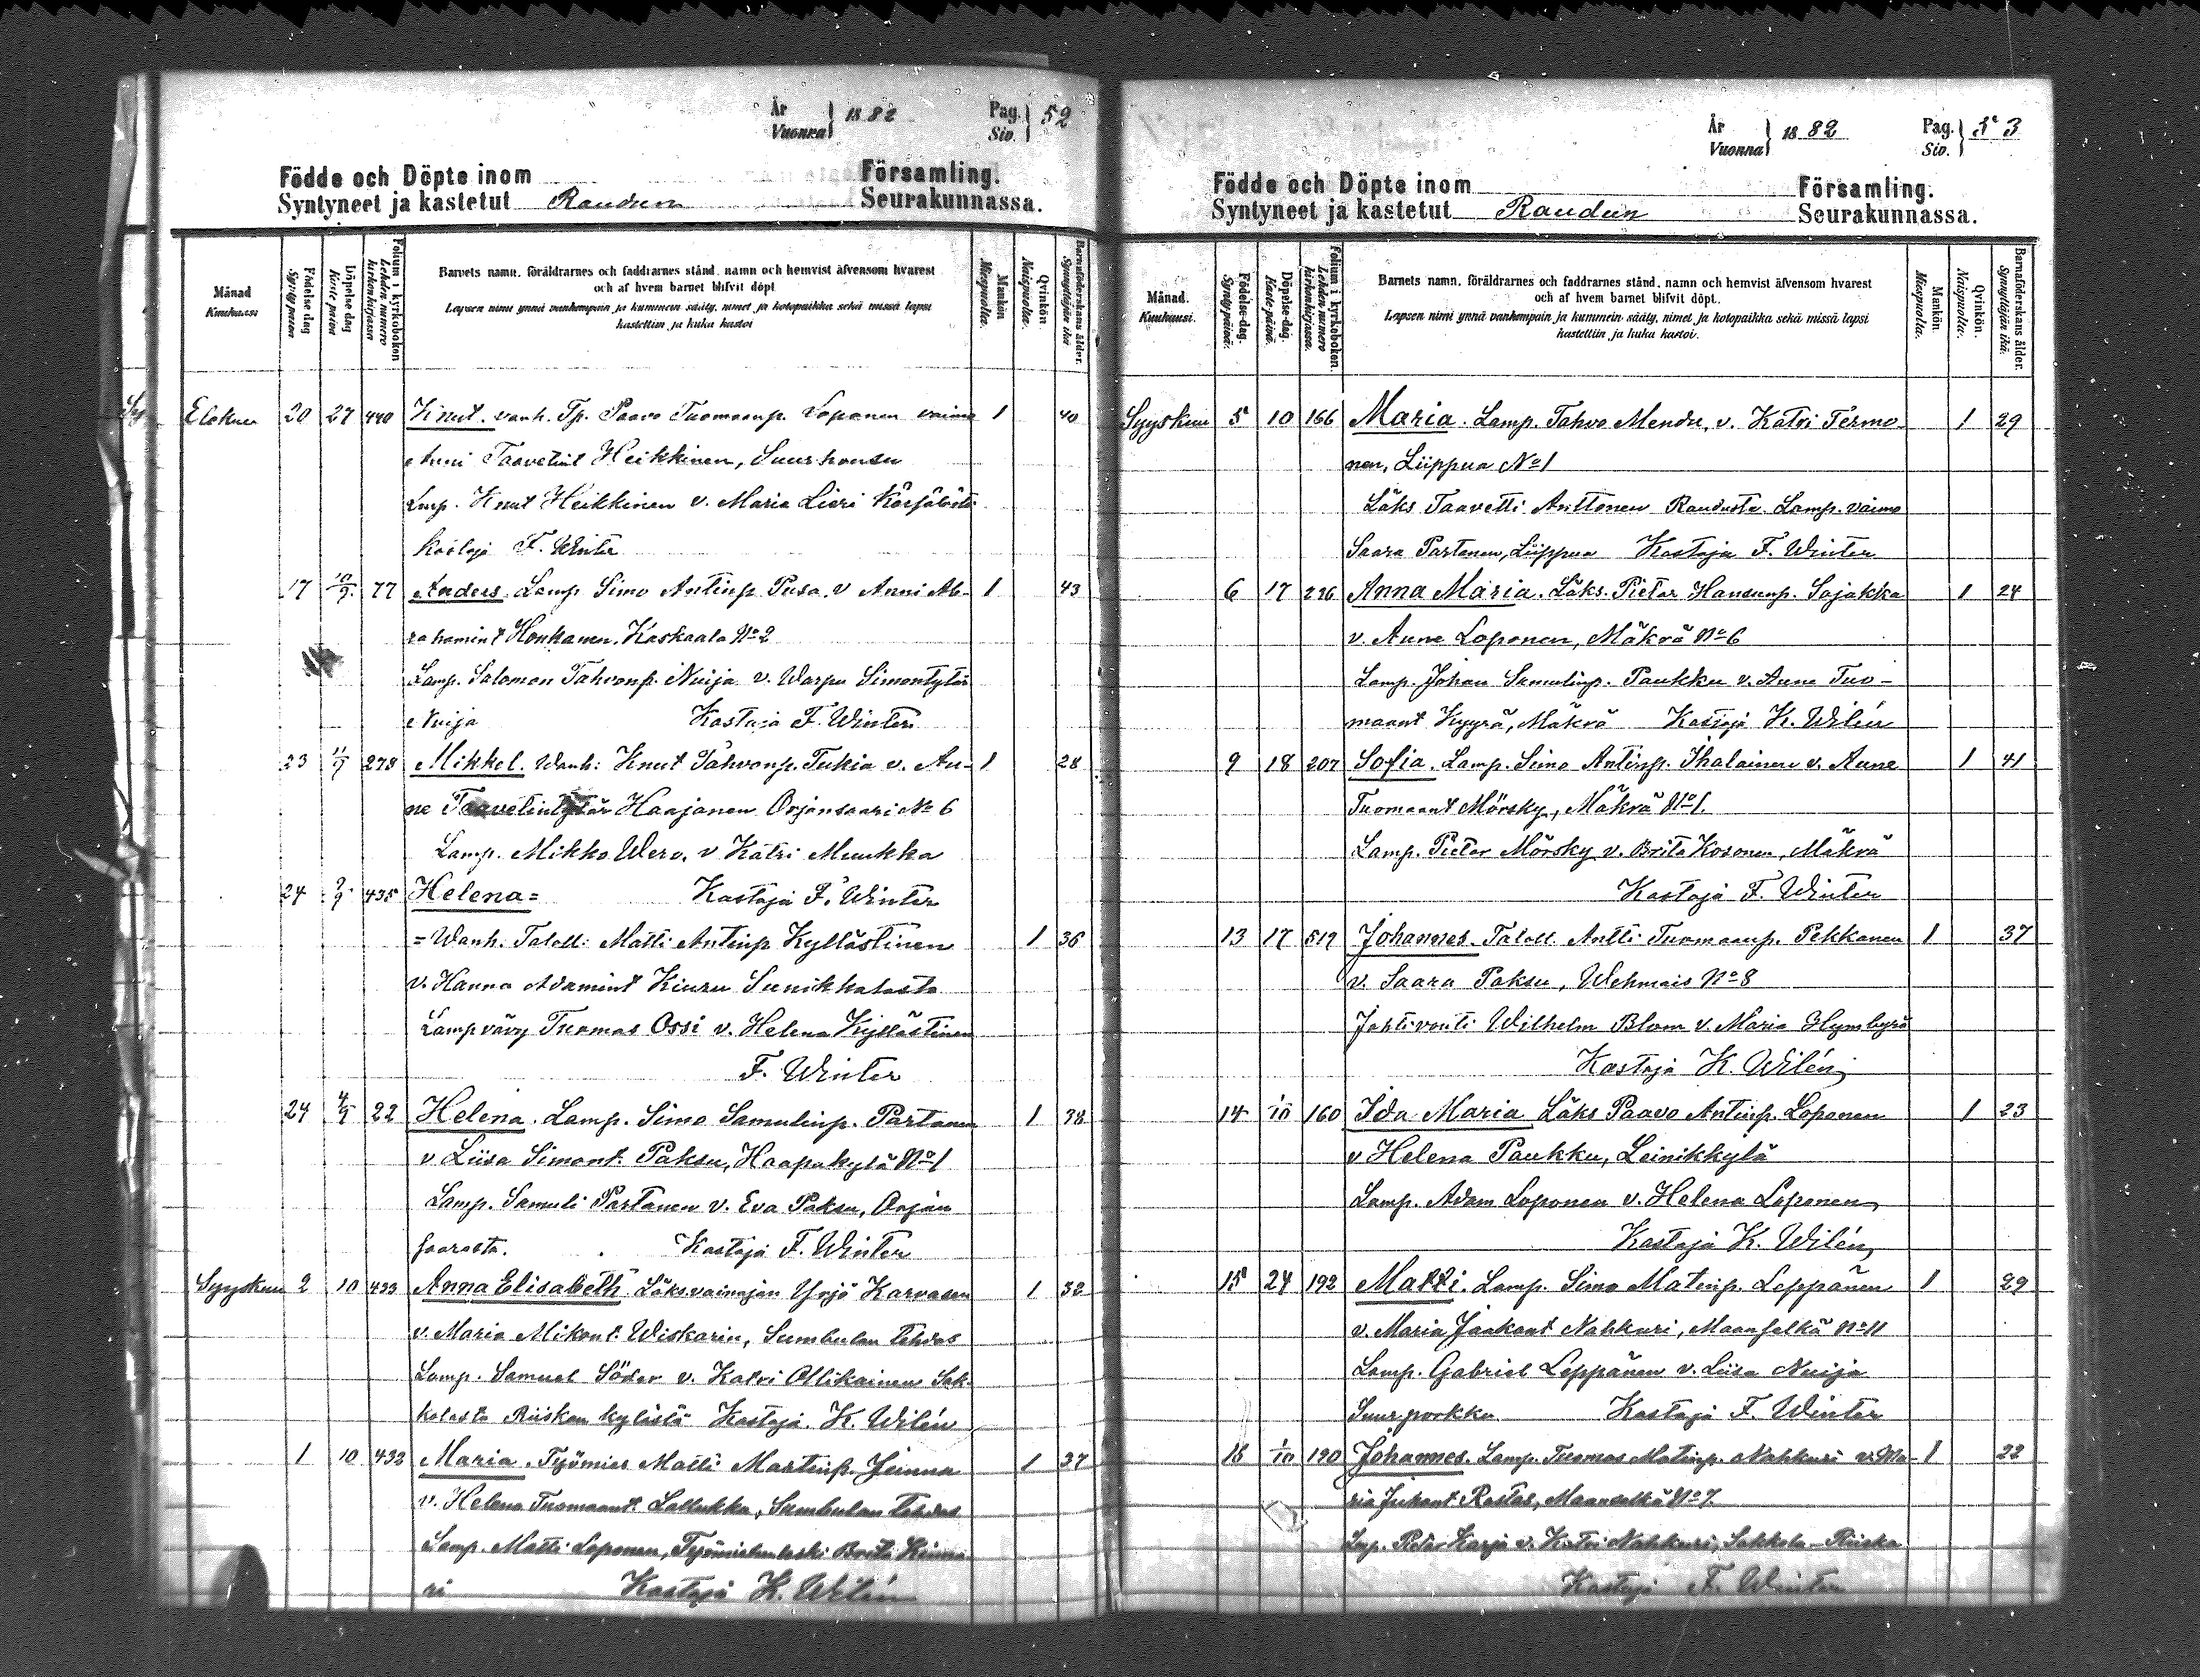 År Vuonna } 1882 Pag. Siv. } 52
Födde och Döpte inom Församling.
Syntyneet ja kastetut Raudun Seurakunnassa.
Månad Kuukausi
Födelse dag Syntypäivä
Döpelse dag Kaste päivä
Folium i kyrkoboken Lehden numero kirkonkirjassa
Barnets namn, föräldrarnes och faddrarnes stånd, namn och hemvist äfvensom hvarest
och af hvem barnet blifvit döpt
Lapsen nimi ynnä vanhempain ja kummein sääty, nimet ja kotopaikka sekä missä lapsi
kastettiin ja kuka kastoi
Mankön Miespuolia.
Qvinkön Naispuolia.
Barnaföderskans ålder. Synnyttäjän ikä
Elokuu 20 27 440 Knut. vanh. Tp. Paavo Tuomaanp. Loponen vaimo 1 40
Anni Taavetint Heikkinen, Suurhousu
Lmp. Knut Heikkinen v. Maria Lieri
Kastaja F. Winter
17 10/9 77 Anders. Lamp Simo Antinp Pusa. v Anni Ab- 1 43
rahamint Honkanen. Kaskaala No 2
Lamp. Salomon Tahvonp. Nuija v. Warpu Simontytär
Nuija Kastaja F. Winter
23 11/9 278 Mikkel. Wanh: Knut Tahvonp. Tukia v. An- 1 28
ne Taavetintytär Haajanen Orjansaari No 6
Lamp. Mikko Wero. v Katri Muukka
24 9/9 435 Helena = Kastaja F. Winter
= Wanh. Taloll: Matti Antinp Kyllästinen 1 36
v. Hanna Adamint Kiuru Sunikkalasta
Lampvävy Tuomas Ossi v. Helena Kyllästinen
F. Winter
24 4/9 22 Helena. Lamp. Simo Samulinp. Partanen 1 38
v Liisa Simont. Paksu, Haapakylä No 1
Lamp. Samuli Partanen v. Eva Paksu, Orjan
saaresta. Kastaja F. Winter
Syyskuu 2 10 433 Anna Elisabeth Läks.vainajan Yrjö Karvasen 1 32
v. Maria Mikont. Wiskarin, Sumbulan tehdas
Lamp. Samuel Söder v. Katri Ollikainen Sak-
kolasta Riiskan kylästä Kastaja K. Wilén
1 10 432 Maria. Työmies Matti Martinp. Jeinna 1 37
v. Helena Tuomaant. Lallukka, Sumbulan tehdas
Lamp. Matti Loponen, Työmiehenleski Brita Kinna-
ri Kastaja K. Wilén
År Vuonna } 1882 Pag. Siv. } 53
Födde och Döpte inom Församling.
Syntyneet ja kastetut Raudun Seurakunnassa.
Månad. Kuukausi.
Födelse-dag. Syntypäivä.
Döpelse-dag. Kaste-päivä.
Folium i kyrkoboken. Lehden numero kirkonkirjassa.
Barnets namn, föräldrarnes och faddrarnes stånd, namn och hemvist äfvensom hvarest
och af hvem barnet blifvit döpt.
Lapsen nimi ynnä vanhempain ja kummein sääty, nimet ja kotopaikka sekä missä lapsi
kastettiin ja kuka kastoi.
Mankön. Miespuolia.
Qvinkön. Naispuolia.
Barnaföderskans ålder. Synnyttäjän ikä.
Syyskuu 5 10 166 Maria. Lamp. Tahvo Mendu, v. Katri Termo- 1 29
nen, Liippua No 1
Läks Taavetti Anttonen Raudusta Lamp. vaimo
Saara Partanen, Liippua Kastaja F. Winter
6 17 226 Anna Maria. Läks. Pietar Hanunp. Sajakka 1 24
v. Anne Loponen, Mäkrä No 6
Lamp. Johan Samulinp. Paukku v. Anna Tuo-
maant Kyyrä, Mäkrä Kastaja K. Wilén
9 18 207 Sofia. Lamp. Simo Antinp. Ihalainen v. Anne 1 41
Tuomaant Mörsky, Mäkrä No 1.
Lamp. Pietar Mörsky v. Brita Kosonen, Mäkrä
Kastaja F. Winter
13 17 519 Johannes. Taloll Antti Tuomaanp. Pekkanen 1 37
v. Saara Paksu, Wehmais No 8
Jahtivouti Wilhelm Blom v. Maria
Kastaja K. Wilén
14 1/10 160 Ida Maria Läks Paavo Antinp. Loponen 1 23
v Helena Paukku, Leinikkylä
Lamp. Adam Loponen v. Helena Loponen
Kastaja K. Wilén
15 24 192 Matti. Lamp. Simo Matinp. Leppänen 1 29
v. Maria Jaakont Nahkuri, Maanselkä No 11
Lamp. Gabriel Leppänen v. Liisa Nuija
Suurporkku Kastaja F. Winter
18 1/10 190 Johannes. Lamp. Tuomas Matinp. Nahkuri v. Ma- 1 22
ria Juhont Rastas, Maanselkä No 7.
Lmp. Pietar Karja v. Katri Nahkuri, Sakkola-Riiska
Kastaja F. Winter